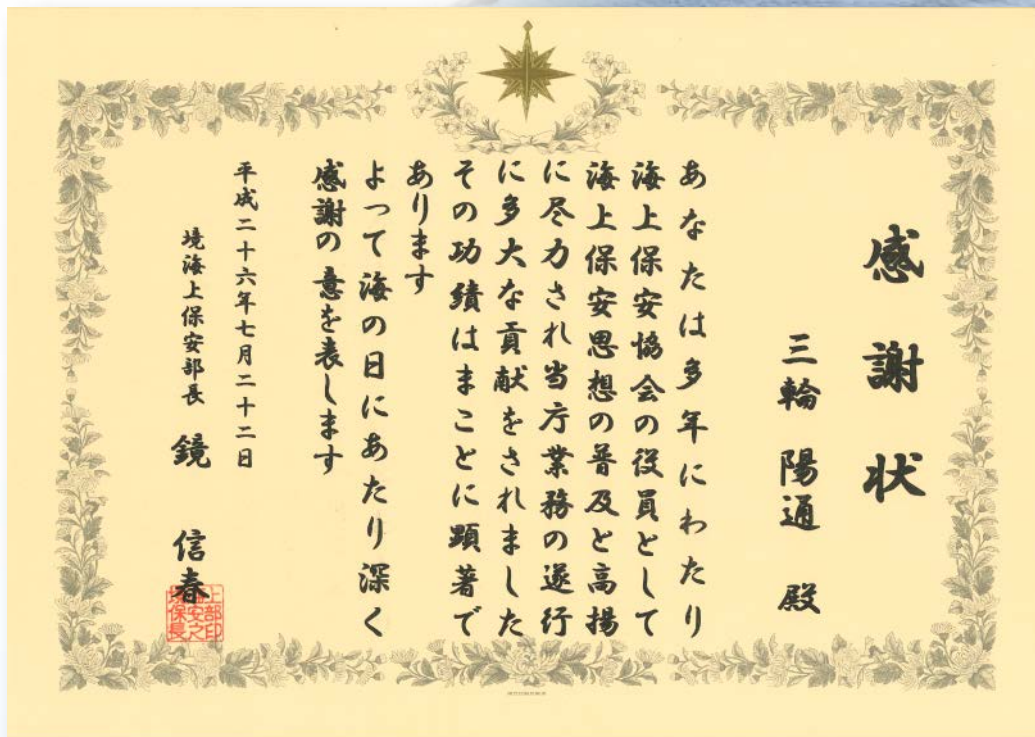 感謝状
三輪 陽通 殿
あなたは多年にわたり
海上保安協会の役員として
海上保安思想の普及と高揚
に尽力され当庁業務の遂行
に多大な貢献をされました
その功績はまことに顕著で
あります
よって海の日にあたり深く
感謝の意を表します
平成二十六年七月二十二日
境海上保安部長 鏡 信春